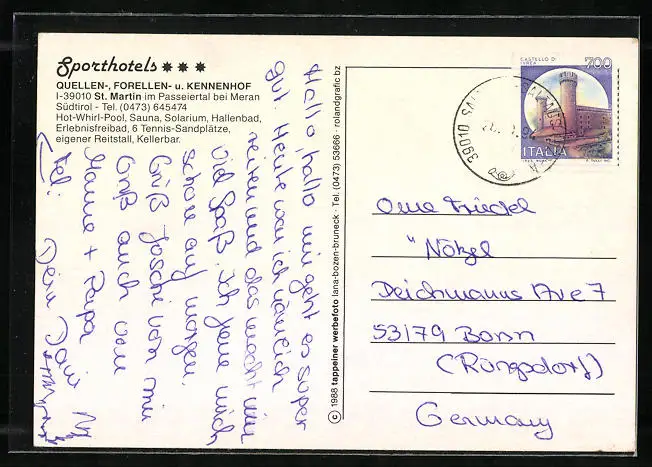 Sporthotels ***
QUELLEN-, FORELLEN- u. KENNENHOF
I-39010 St. Martin im Passeiertal bei Meran
Südtirol - Tel. (0473) 645474
Hot-Whirl-Pool, Sauna, Solarium, Hallenbad,
Erlebnisfreibad, 6 Tennis-Sandplätze,
eigener Reitstall, Kellerbar.
Hallo, hallo mir geht es super
gut. Heute war ich nämlich
reiten und das macht mir
viel Spaß. Ich freue mich
schon auf morgen.
Grüß Joschi von mir
Gruß auch von
Mama + Papa
Tel: Dein
© 1988 tappeiner werbefoto lana-bozen-bruneck · Tel. (0473) 53666 · rolandgrafic bz
CASTELLO DI
IVREA
700
ITALIA
39010
Oma Friedel
" Nötzel
Deichmanns Ave 7
53179 Bonn
(Rüngsdorf)
Germany